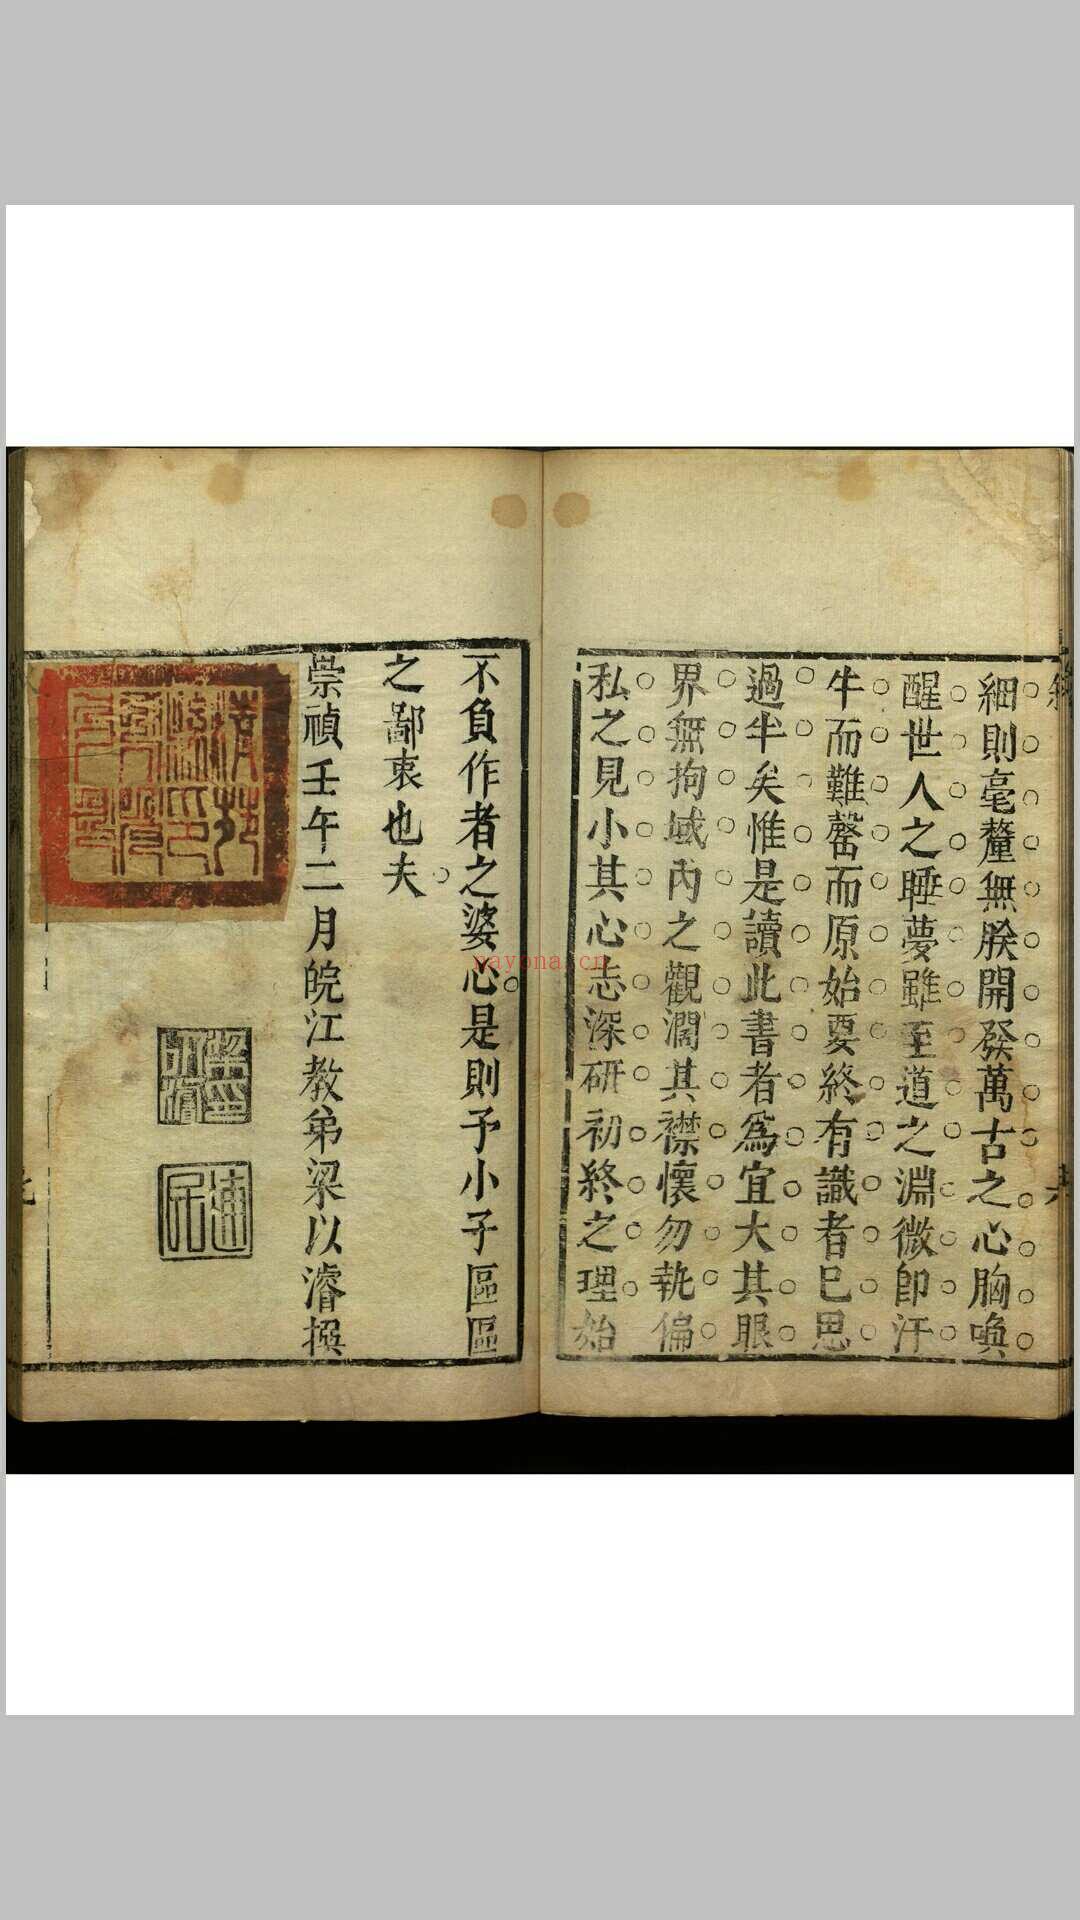 細則毫釐無朕開發萬古之心胸喚
醒世人之睡夢雖至道之淵微卽汗
牛而難罄而原始要終有識者已思
過半矣惟是讀此書者爲宜大其眼
界無拘域內之觀濶其襟懷勿執偏
私之見小其心志深研初終之理始
不負作者之婆心是則予小子區區
之鄙衷也夫
崇禎壬午二月皖江教弟梁以濬撰
nayona.cn